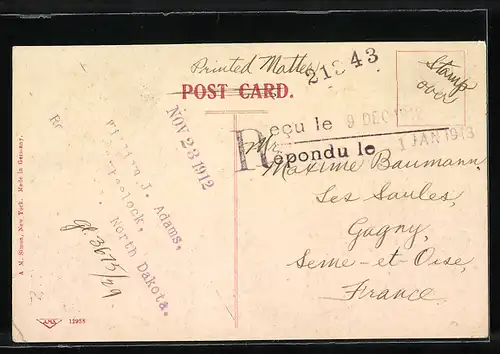 Printed Matter
21343
Stamp
over
POST CARD.
NOV 23 1912
Reçu le 9 DEC 1912
Répondu le 1 JAN 1913
Mr.
Maxime Baumann,
Les Saules,
Gagny,
Seine-et-Oise,
France
J. Adams,
North Dakota.
gl. 3675/29
A. M. Simon, New York. Made in Germany.
AMS 12958